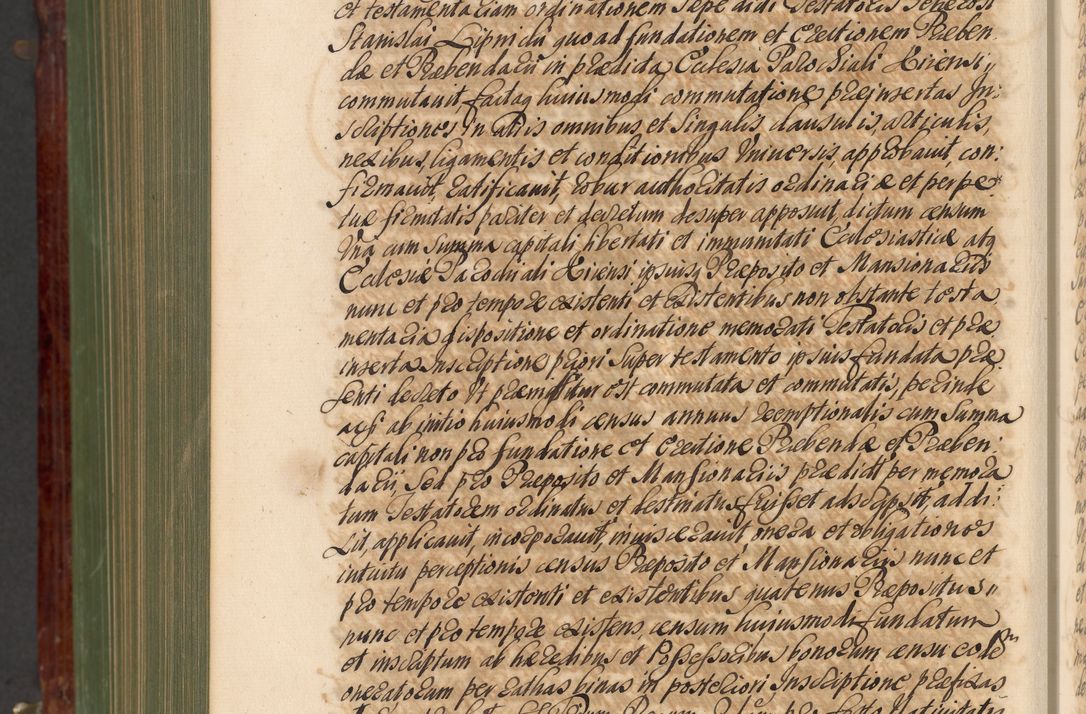 et testamentariam ordinationem sepe dicti Testatoris Generosi
Stanislai Lipnicki quoad fundationem et Erectionem Præben
dæ et Præbendarii in prædicta Ecclesia Parochiali
commutavit, factaq huiusmodi commutatione præinsertas In:
scriptiones in aliis omnibus, et Singulis clausulis, articulis,
nexibus, ligamentis et conditionibus Universis, approbavit, con:
firmavit, ratificavit, robur authoritatis ordinariæ et perpe
tuæ firmitatis pariter et decretum desuper apposuit, dictum censum
Vna cum Summa capitali libertati et immunitati Ecclesiasticæ atq
Ecclesiæ Parochiali ipsiusq Præposito et Mansionariis
nunc et pro tempore existenti et existentibus non obstante testa
mentaria dispositione et ordinatione memorati Testatoris et præ
inserta Inscriptione priori Super testamento ipsius fundata præ
senti decreto Ut præmittitur est commutata et commutatis, perinde
acsi ab initio huiusmodi census annuus reemptionalis cum Summa
capitali non pro fundatione et Erectione Præbendæ et Præben:
darii, Sed pro Præposito et Mansionariis prædict per memora
tum Testatorem ordinatus et destinatus fuisset adscripsit, addi:
xit, applicavit, incorporavit, inuisceravit onera et obligationes
intuitu perceptionis census Præposito et Mansionariis nunc et
pro tempore existenti et existentibus quatenus Præpositus
nunc et pro tempore existens, censum huiusmodi fundatum
et inscriptum ab hæredibus et Possessoribus bonorum censu eodem
oneratorum per rathas binas in posteriori Inscriptione præfixas